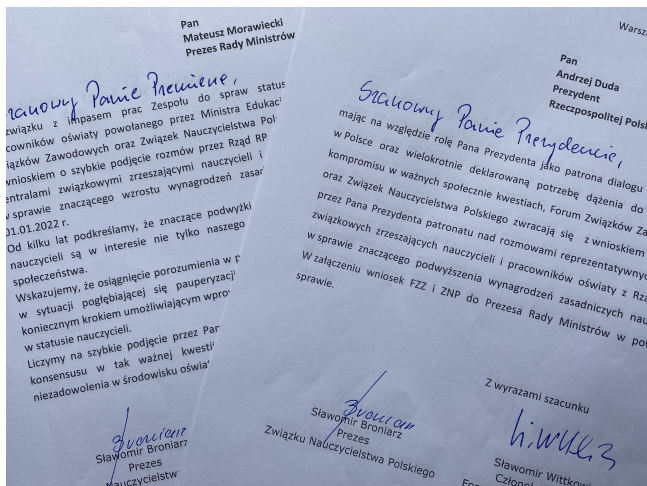 Pan
Mateusz Morawiecki
Prezes Rady Ministrów
Szanowny Panie Premierze,
związku z impasem prac Zespołu do spraw status
cowników oświaty powołanego przez Ministra Edukac
iązków Zawodowych oraz Związek Nauczycielstwa Pol
wnioskiem o szybkie podjęcie rozmów przez Rząd RP
entralami związkowymi zrzeszającymi nauczycieli i
w sprawie znaczącego wzrostu wynagrodzeń zasad
01.01.2022 r.
Od kilku lat podkreślamy, że znaczące podwyżki
nauczycieli są w interesie nie tylko naszego
społeczeństwa.
Wskazujemy, że osiągnięcie porozumienia w p
w sytuacji pogłębiającej się pauperyzacji
koniecznym krokiem umożliwiającym wpro
w statusie nauczycieli.
Liczymy na szybkie podjęcie przez Pan
konsensusu w tak ważnej kwestii
niezadowolenia w środowisku oświat
Sławomir Broniarz
Prezes
Nauczycielstw
Warsz
Pan
Andrzej Duda
Prezydent
Rzeczpospolitej Polsk
Szanowny Panie Prezydencie,
mając na względzie rolę Pana Prezydenta jako patrona dialogu
w Polsce oraz wielokrotnie deklarowaną potrzebę dążenia do
kompromisu w ważnych społecznie kwestiach, Forum Związków Za
oraz Związek Nauczycielstwa Polskiego zwracają się z wnioskiem
przez Pana Prezydenta patronatu nad rozmowami reprezentatywnyc
związkowych zrzeszających nauczycieli i pracowników oświaty z Rzą
w sprawie znaczącego podwyższenia wynagrodzeń zasadniczych nau
W załączeniu wniosek FZZ i ZNP do Prezesa Rady Ministrów w pow
sprawie.
Z wyrazami szacunku
Sławomir Broniarz
Prezes
Związku Nauczycielstwa Polskiego
Sławomir Wittkow
Człon